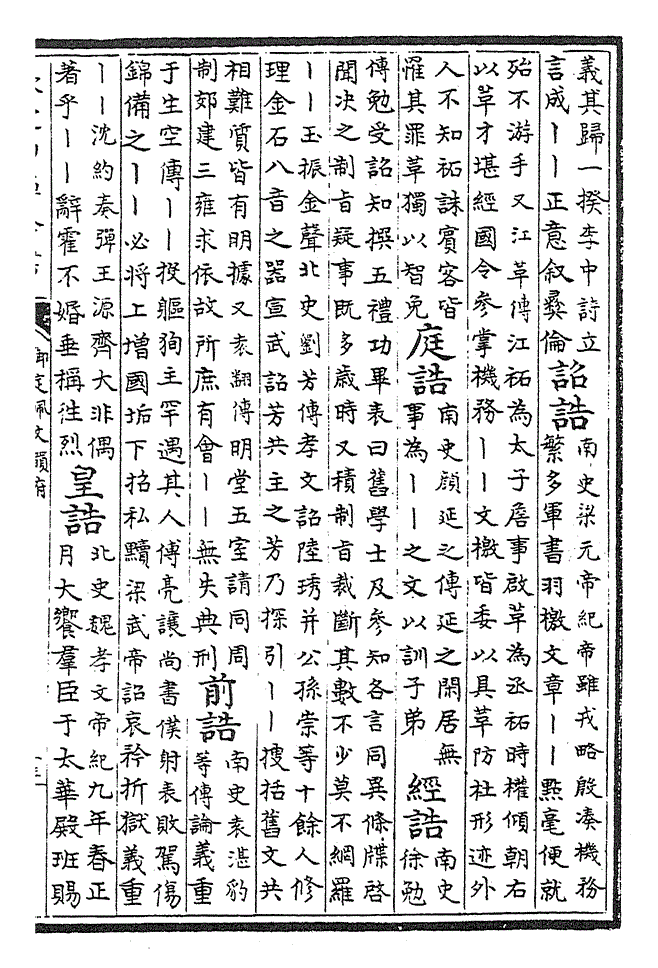 義其歸一揆李中詩立
言成丨丨正意叙彞倫
詔誥
南史梁元帝紀帝雖戎略殷湊機務
繁多軍書羽檄文章丨丨點毫便就
殆不游手又江革傳江祏為太子詹事啟革為丞祏時權傾朝右
以革才堪經國令參掌機務丨丨文檄皆委以具革防杜形迹外
人不知祏誅賓客皆
罹其罪革獨以智免
庭誥
南史顔延之傳延之閒居無
事為丨丨之文以訓子弟
經誥
南史
徐勉
傳勉受詔知撰五禮功畢表曰舊學士及參知各言同異條牒啓
聞决之制旨疑事既多歲時又積制旨裁斷其數不少莫不網羅
丨丨玉振金聲北史劉芳傳孝文詔陸琇并公孫崇等十餘人修
理金石八音之器宣武詔芳共主之芳乃探引丨丨搜括舊文共
相難質皆有明據又袁翻傳明堂五室請同周
制郊建三雍求依故所庶有會丨丨無失典刑
前誥
南史袁湛豹
等傳論義重
于生空傳丨丨投軀狥主罕遇其人傅亮讓尚書僕射表敗駕傷
錦備之丨丨必將上增國垢下招私黷梁武帝詔哀矜折獄義重
丨丨沈約奏彈王源齊大非偶
著乎丨丨辭霍不婚垂稱徃烈
皇誥
北史魏孝文帝紀九年春正
月大饗羣臣于太華殿班賜
御定佩文韻府